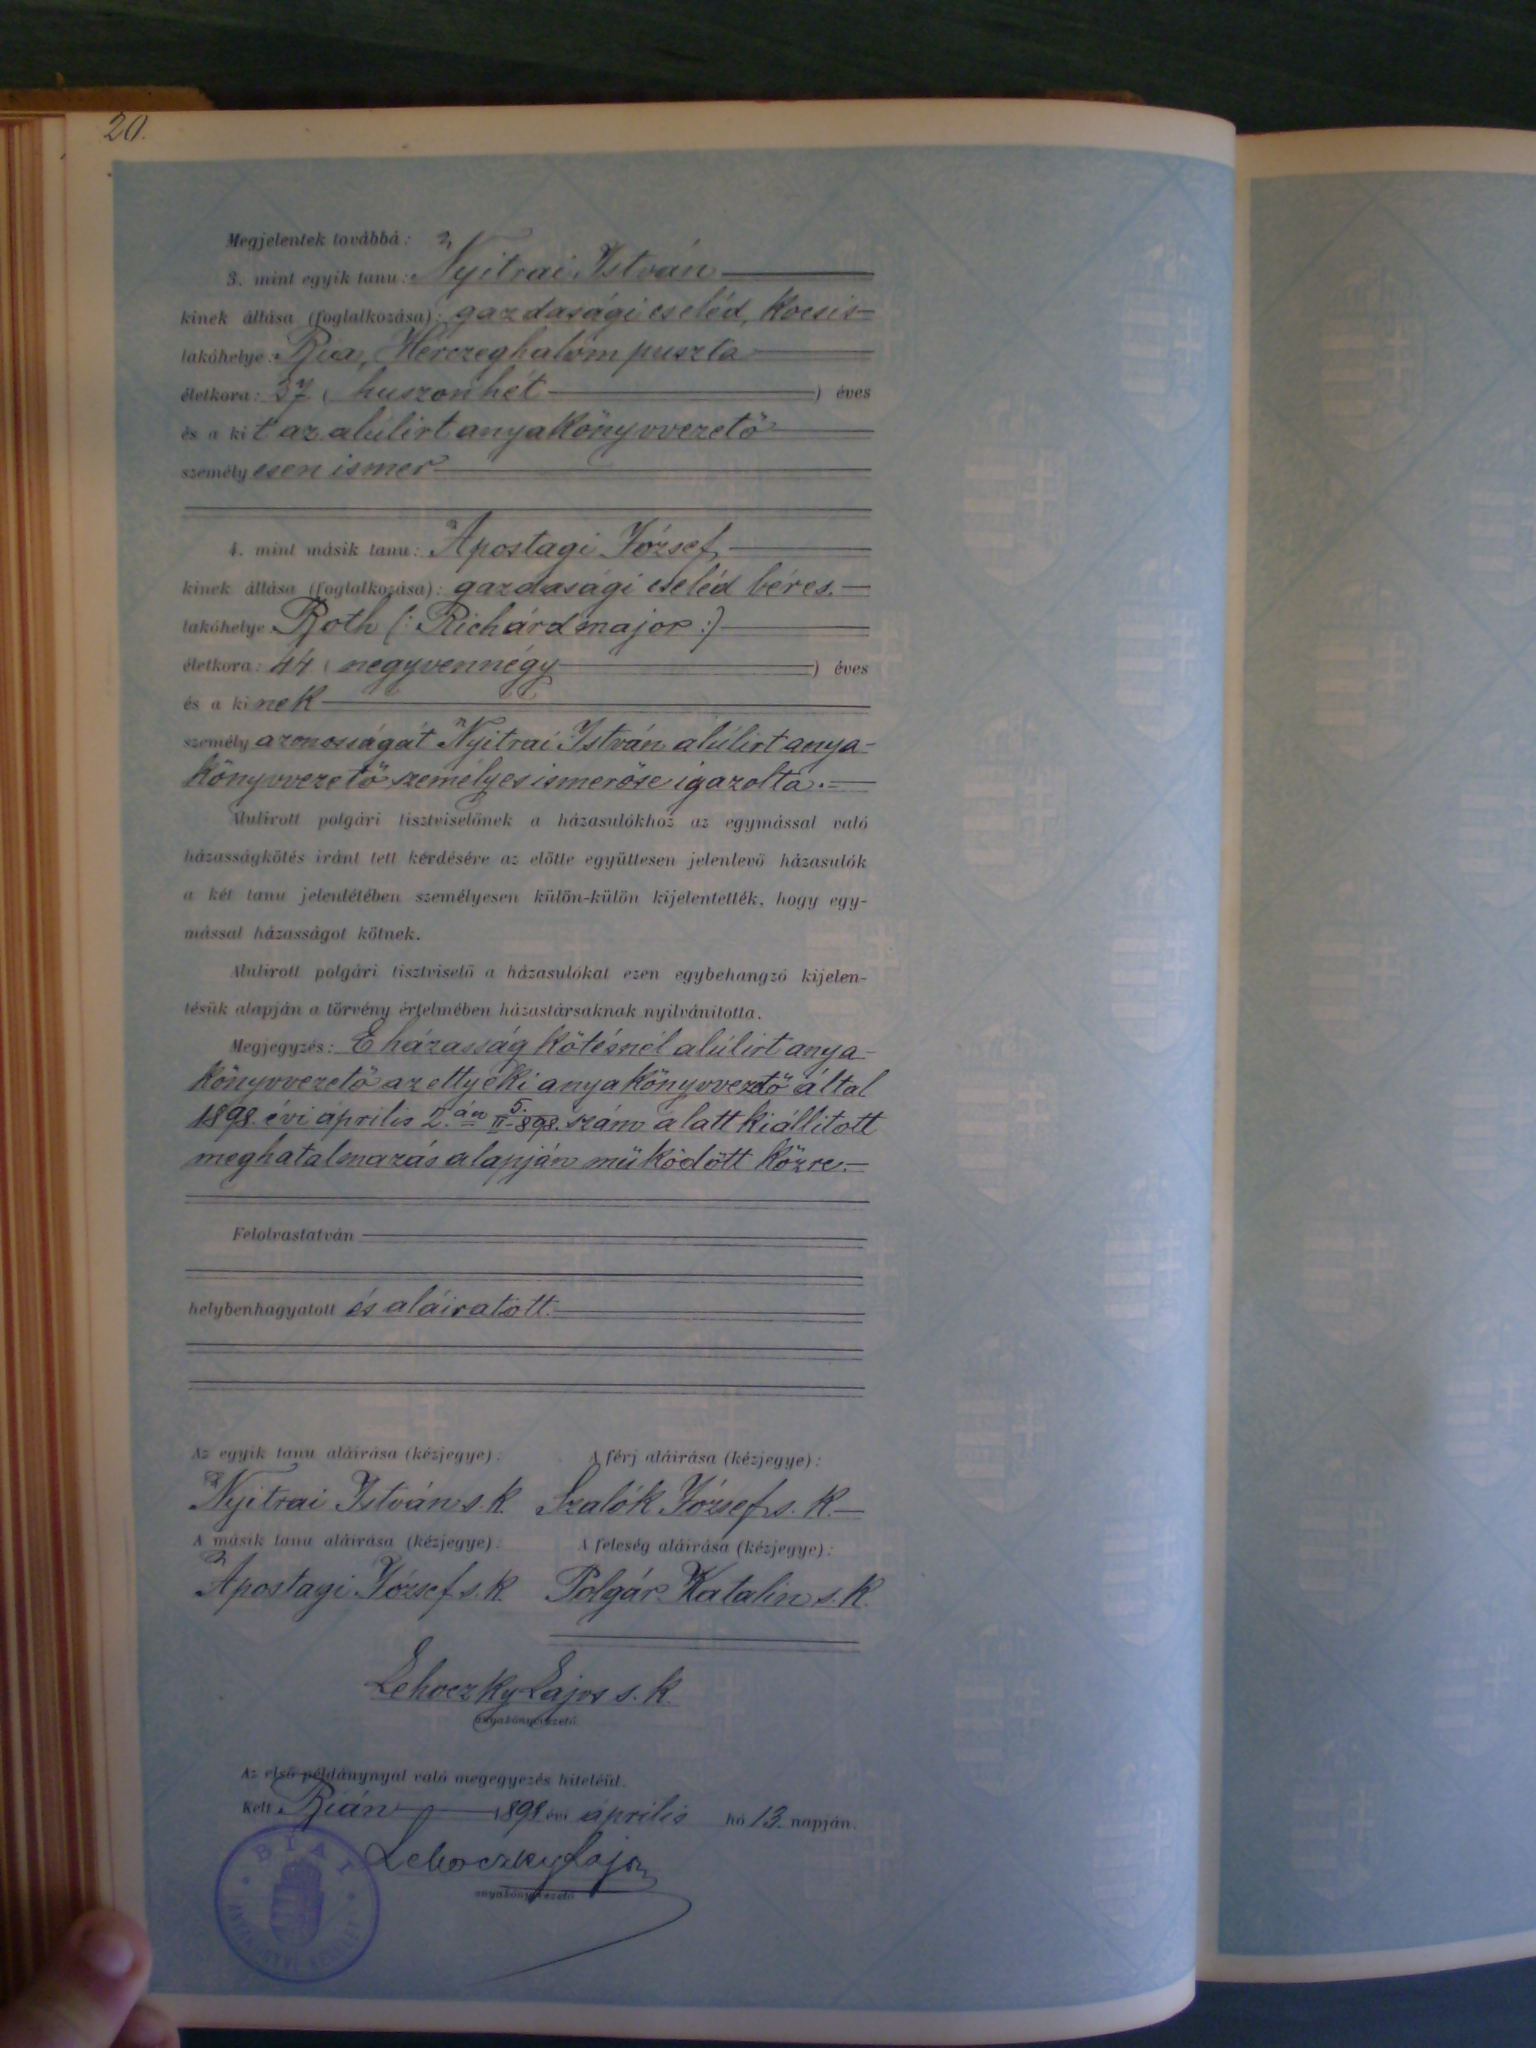 20.
Megjelentek továbbá:
3. mint egyik tanu: Nyitrai István
kinek állása (foglalkozása): gazdasági cseléd, kocsis
lakóhelye: Bia, Herczeghalom puszta
életkora: 37 (huszonhét) éves
és a kit az alúlirt anyakönyvvezető
személyesen ismer
4. mint másik tanu: Apostagi József,
kinek állása (foglalkozása): gazdasági cseléd béres.
lakóhelye Both (: Richárdmajor :)
életkora: 44 (negyvennégy) éves
és a kinek
személyazonosságát Nyitrai István alúlirt anya-
könyvvezető személyes ismerőse igazolta.
Alulirott polgári tisztviselőnek a házasulókhoz az egymással való
házasságkötés iránt tett kérdésére az előtte együttesen jelenlevő házasulók
a két tanu jelenlétében személyesen külön-külön kijelentették, hogy egy-
mással házasságot kötnek.
Alulirott polgári tisztviselő a házasulókat ezen egybehangzó kijelen-
tésük alapján a törvény értelmében házastársaknak nyilvánitotta.
Megjegyzés: E házasság kötésnél alúlirt anya-
könyvvezető az ettyeki anyakönyvvezető által
1898. évi április 2.án 5./II-898. szám alatt kiállitott
meghatalmazás alapján működött közre.
Felolvastatván
helybenhagyatott és aláiratott.
Az egyik tanu aláirása (kézjegye): A férj aláirása (kézjegye):
Nyitrai István s. k. Szalók József s. k.
A másik tanu aláirása (kézjegye): A feleség aláirása (kézjegye):
Apostagi József s. k. Polgár Katalin s. k.
Lehoczky Lajos s. k.
anyakönyvvezető
Az első példánynyal való megegyezés hiteléül.
Kelt Bián 1898 évi április hó 13. napján.
Lehoczky Lajos
anyakönyvvezető
BIAI